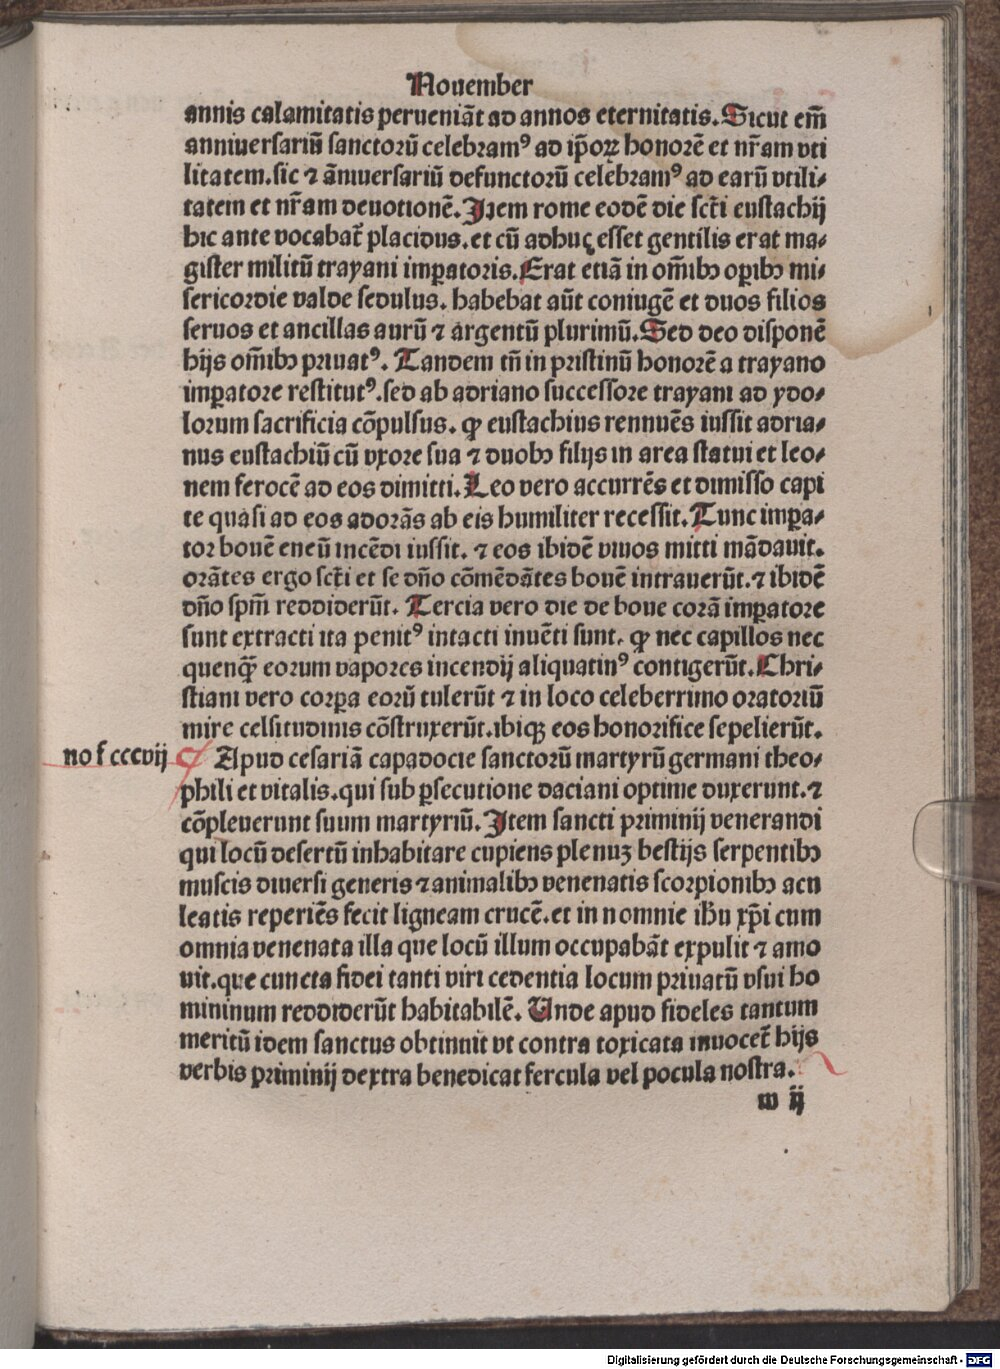 Nouember
annis calamitatis perueniāt ad annos eternitatis. Sicut em̄
anniuersariū sanctorū celebramꝰ ad ip̄oꝝ honorē et nr̄am vti
litatem. sic ⁊ āniuersariū defunctorū celebramꝰ ad earū vtili⸗
tatem et nr̄am deuotionē. Item rome eodē die sct̄i eustachij
hic ante vocabat᷑ placidus. et cū adhuc esset gentilis erat ma⸗
gister militū trayani imꝑatoris. Erat etiā in om̄ibꝫ oꝑibꝫ mi⸗
sericordie valde sedulus. habebat aūt coniugē et duos filios
seruos et ancillas aurū ⁊ argentū plurimū. Sed deo disponē
hijs om̄ibꝫ priuatꝰ. Tandem tn̄ in pristinū honorē a trayano
imꝑatore restitutꝰ. sed ab adriano successore trayani ad ydo⸗
lorum sacrificia cōpulsus. ꝙ eustachius rennuēs iussit adria⸗
nus eustachiū cū vxore sua ⁊ duobꝫ filijs in area statui et leo⸗
nem ferocē ad eos dimitti. Leo vero accurrēs et dimisso capi
te quasi ad eos adorās ab eis humiliter recessit. Tunc imꝑa⸗
tor bouē eneū incēdi iussit. ⁊ eos ibidē viuos mitti mādauit.
orātes ergo sct̄i et se dn̄o cōmēdātes bouē intrauerūt. ⁊ ibidē
dn̄o spm̄ reddiderūt. Tercia vero die de boue corā imꝑatore
sunt extracti ita penitꝰ intacti inuēti sunt. ꝙ nec capillos nec
quenqꝫ̄ eorum vapores incendij aliquatinꝰ contigerūt. Chri⸗
stiani vero corꝑa eorū tulerūt ⁊ in loco celeberrimo oratoriū
mire celsitudinis cōstruxerūt. ibiqꝫ eos honorifice sepelierūt.
no f cccvij Apud cesariā capadocie sanctorū martyrū germani theo⸗
phili et vitalis. qui sub ꝑsecutione daciani optime duxerunt. ⁊
cōpleuerunt suum martyriū. Item sancti priminij venerandi
qui locū desertū inhabitare cupiens plenuꝫ bestijs serpentibꝫ
muscis diuersi generis ⁊ animalibꝫ venenatis scorpionibꝫ acu
leatis reperiēs fecit ligneam crucē. et in nomnie ihū xp̄i cum
omnia venenata illa que locū illum occupabāt expulit ⁊ amo
uit. que cuncta fidei tanti viri cedentia locum priuatū vsui ho
mininum reddiderūt habitabilē. Unde apud fideles tantum
meritū idem sanctus obtinuit vt contra toxicata inuocet᷑ hijs
verbis priminij dextra benedicat fercula vel pocula nostra.
w ij
Digitalisierung gefördert durch die Deutsche Forschungsgemeinschaft - DFG